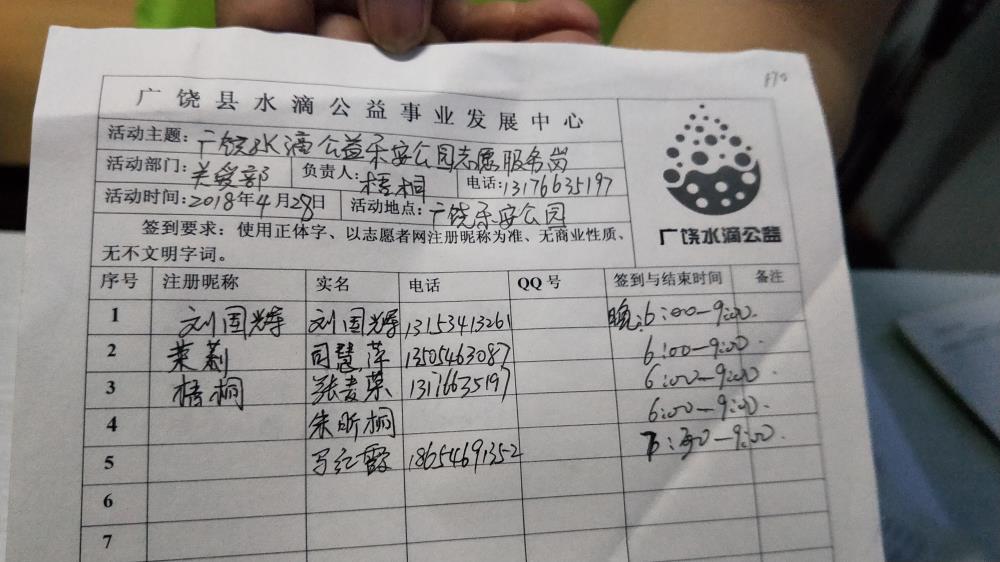 广饶县水滴公益事业发展中心
活动主题:广饶水滴公益乐安公园志愿服务岗
活动部门:关爱部 负责人:梧桐 电话:13176635197
活动时间:2018年4月28日 活动地点:广饶乐安公园
签到要求:使用正体字、以志愿者网注册昵称为准、无商业性质、
无不文明字词。
广饶水滴公益
序号 注册昵称 实名 电话 QQ号 签到与结束时间 备注
1 刘国辉 刘国辉 13153413261 晚:6:00-9:00.
2 茉莉 司慧萍 13505463087 6:00-9:00.
3 梧桐 张麦荣 13176635197 6:00-9:00.
4 朱昕桐 6:00-9:00.
5 马红霞 18654691352 -9:00.
6
7